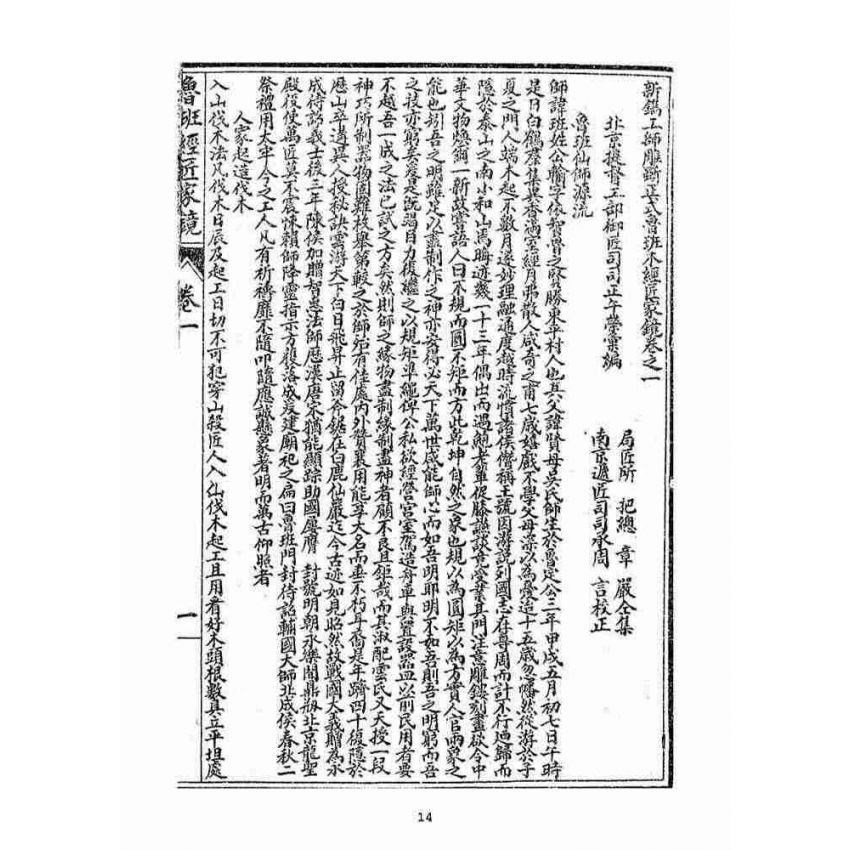 新鐫工師雕斲正式魯班木經匠家鏡卷之一
北京提督工部御匠司司正午榮彙編
局匠所 把總 章 嚴仝集
南京遞匠司司承周 言校正
魯班仙師源流
師諱班姓公輸字依智魯之賢勝東平村人也其父諱賢母吳氏師生於魯定公三年甲戌五月初七日午時
是日白鶴羣集異香滿室經月弗散人咸奇之甫七歲嬉戲不學父母深以為憂迨十五歲忽幡然從游於子
夏之門人端木起不數月遂妙理融通度越時流憤諸侯僭稱王號因游說列國志在尊周而計不行廼歸而
隱於泰山之南小和山焉晦迹幾一十三年偶出而遇鮑老輩促膝讌談竟受業其門注意雕鏤刻畫欲令中
華文物煥爾一新故嘗語人曰不規而圓不矩而方此乾坤自然之象也規以為圓矩以為方實人官兩象之
能也矧吾之明雖足以盡制作之神亦安得必天下萬世咸能師心而如吾明耶明不如吾則吾之明窮而吾
之技亦窮矣爰是既竭目力復繼之以規矩準繩俾公私欲經營宮室駕造舟車與置設器皿以前民用者要
不越吾一成之法已試之方矣然則師之緣物盡制緣制盡神者顧不良且鉅哉而其淑配雲氏又天授一段
神巧所制器物固難枚舉第較之於師殆有佳處內外贊襄用能享大名而垂不朽耳裔是年躋四十復隱於
歷山卒遘異人授秘訣雲游天下白日飛昇止留斧鋸在白鹿仙巖迄今古迹如見昭然故戰國大義贈為永
成待詔義士後三年陳侯加贈智惠法師歷漢唐宋猶能顯踪助國屢膺 封號明朝永樂間鼎剏北京龍聖
殿役使萬匠莫不震悚賴師降靈指示方獲落成爰建廟祀之扁曰魯班門封待詔輔國大師北成侯春秋二
祭禮用太牢今之工人凡有祈禱靡不隨叩隨應誠懸象著明而萬古仰照者
人家起造伐木
入山伐木法凡伐木日辰及起工日切不可犯穿山殺匠人入山伐木起工且用看好木頭根數具立平坦處
魯班經匠家鏡 卷一 一
14